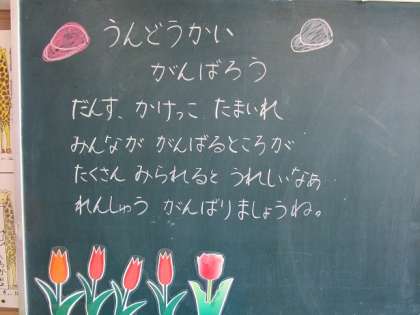 うんどうかい
がんばろう
だんす、かけっこ たまいれ
みんなが がんばるところが
たくさん みられると うれしいなぁ
れんしゅう がんばりましょうね。